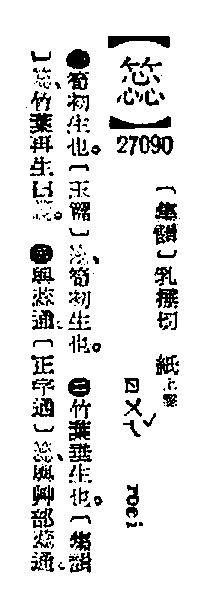 【】
27090
〔集韻〕乳捶切 紙上聲
ㄖㄨㄟˇ roei
㊀筍初生也。〔玉篇〕、筍初生也。㊁竹葉垂生也。〔集韻
〕、竹葉再生曰。㊂與蕊通。〔正字通〕、與艸部蕊通。